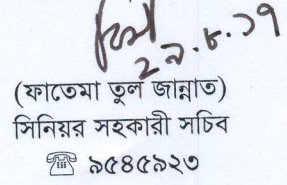 ২৯.৮.১৭
(ফাতেমা তুল জান্নাত)
সিনিয়র সহকারী সচিব
☎ ৯৫৪৫৯২৩